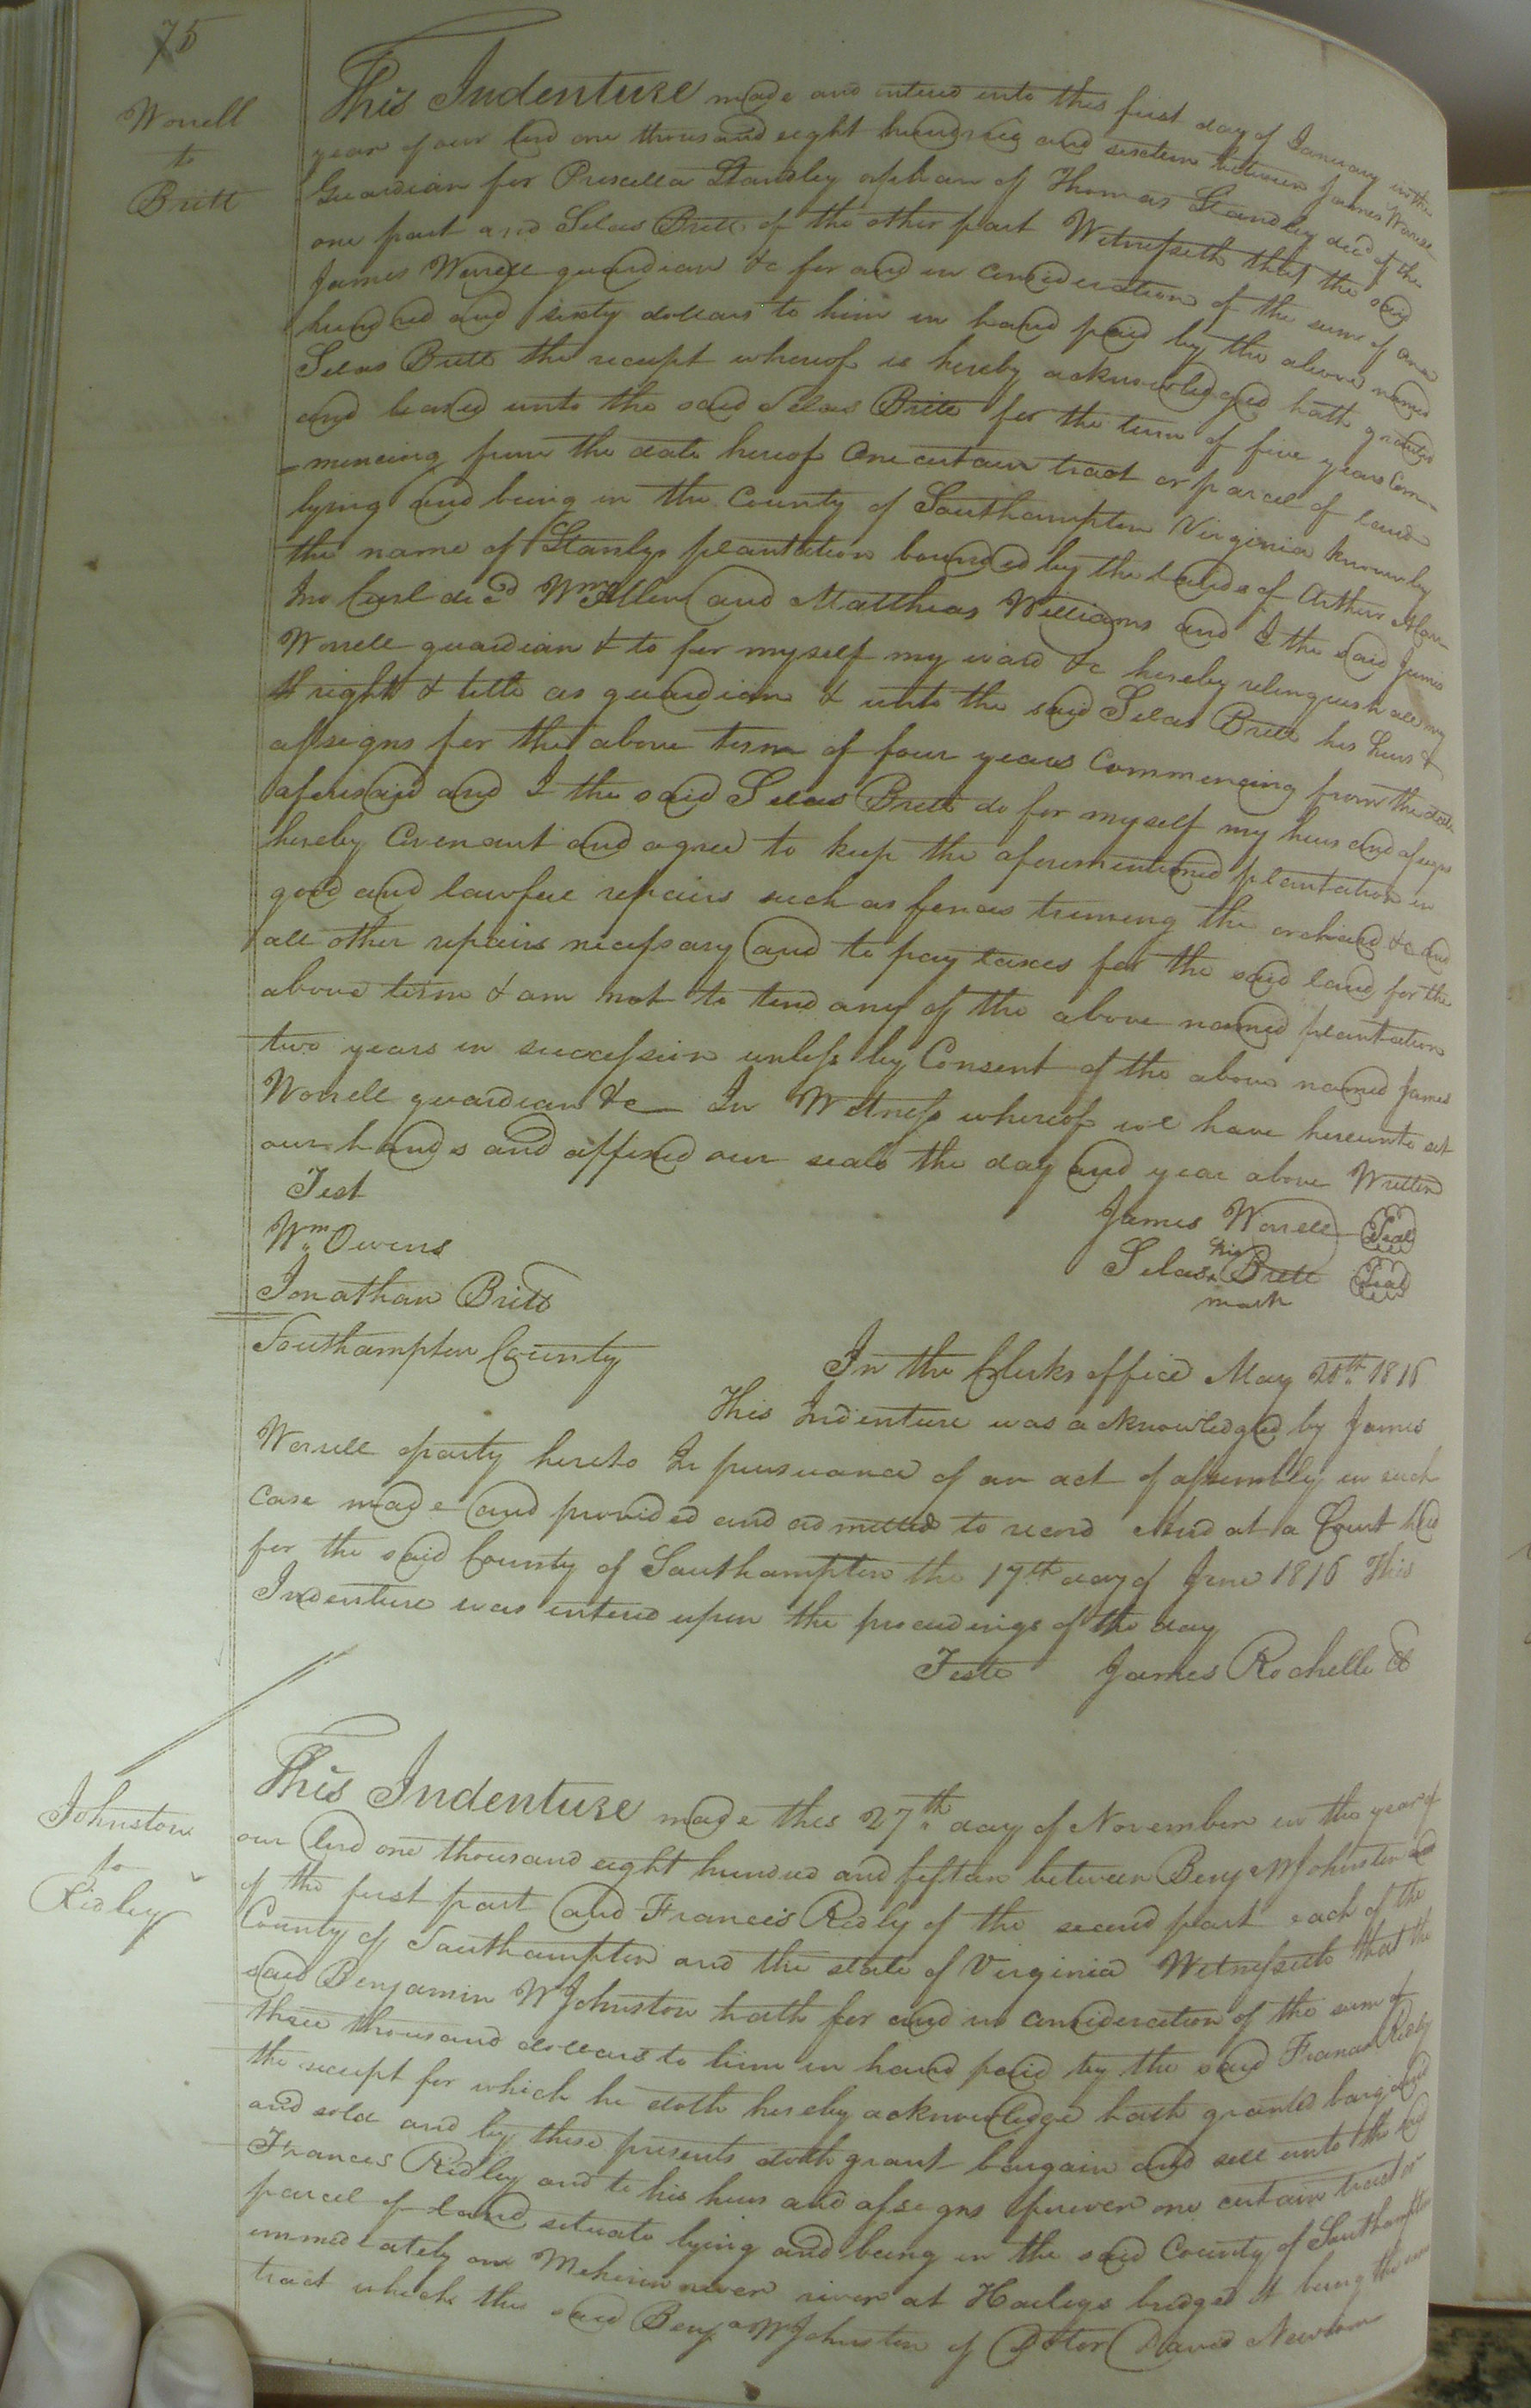 75
Worrell
to
Britt
This Indenture made and entered into this first day of January in the
year of our lord one thousand eight hundred and sixteen between James Worrell
Guardian for Priscilla Standley orphan of Thomas Standley decd of the
one part and Selas Britt of the other part Witnesseth that the said
James Worrell guardian &c for and in consideration of the sum of one
hundred and sixty dollars to him in hand paid by the above named
Selas Britt the receipt whereof is hereby acknowledged hath granted
and leased unto the said Selas Britt for the term of five years Com-
-mencing from the date hereof One certain tract or parcel of land
lying and being in the County of Southampton Virginia known by
the name of Stanlys plantation bounded by the lands of Arthur
Jno decd Wm Allen and Matthias Williams and I the said James
Worrell guardian & to for myself my ward &c hereby relinquish all my
right & title as guardian & unto the said Selas Britt his heirs &
assigns for the above term of four years Commencing from the date
aforesaid and I the said Selas Britt do for myself my heirs and assigns
hereby Covenant and agree to keep the aforementioned plantation in
good and lawfull repairs such as fences triming the orchard &c and
all other repairs necessary and to pay taxes for the said land for the
above term & am not to tend any of the above named plantation
two years in succession unless by Consent of the above named James
Worrell guardian &c In Witness whereof we have hereunto set
our hands and affixed our seals the day and year above Written
Test
James Worrell Seal
Wm Owens
his
Selas x Britt Seal
mark
Jonathan Britt
Southampton County
In the Clerks office May 20th 1816
This Indenture was acknowledged by James
Worrell party hereto In pursuance of an act of assembly in such
case made and provided and admitted to record And at a Court held
for the said County of Southampton the 17th day of June 1816 This
Indenture was entered upon the proceedings of the day
Teste James Rochelle
Johnston
to
Ridley
This Indenture made this 27th day of November in the year of
our lord one thousand eight hundred and fifteen between Benja W Johnston
of the first part and Frances Ridly of the second part each of the
County of Southampton and the state of Virginia Witnesseth that the
said Benjamin W Johnston hath for and in consideration of the sum of
three thousand dollars to him in hand paid by the said Frances Ridley
the receipt for which he doth hereby acknowledge hath granted bargained
and sold and by these presents doth grant bargain and sell unto the said
Frances Ridley and to his heirs and assigns forever one certain tract or
parcel of land situate lying and being in the said County of Southampton
immediately on Meherin river at Haileys bridge it being the same
tract which the said Benja W Johnston of Doctor David Newsom